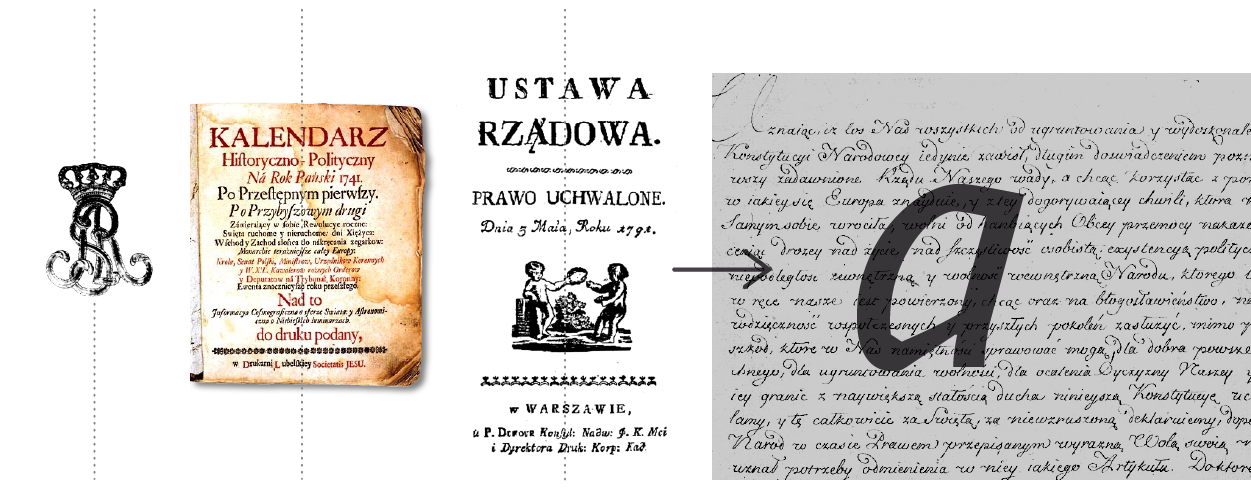 KALENDARZ
Historyczno-Polityczny
Ná Rok Pański 1741.
Po Przestępnym pierwszy.
Po Przybyszowym drugi
Zámieraiący w sobie, Rewolucye roczne:
Swięta ruchome y nieruchome: dni Xiężyca:
Wschod y Zachod słońca do nákręcenia zegarkow:
Monarchie teraźnieysze całey Europy.
Krole, Senat Polski, Ministrow, Urzędnikow Koronnych
y W.X.L. Kawalerow rożnych Orderow
y Deputatow ná Trybunał Koronny:
Ewenta znacznieysze roku przeszłego.
Nad to
Informacya Cosmograficzna o sferze Swiata: y Astronomi-
czna o Niebieskich luminarzach.
do druku podany,
w Drukarni Lubelskiey Societatis JESU.
USTAWA
RZĄDOWA.
PRAWO UCHWALONE.
Dnia 5 Maia, Roku 1791.
w WARSZAWIE,
u P. Dufour Konsyl: Nadw: J. K. Mci
i Dyrektora Druk: Korp: Kad.
a
znaiąc, iż los Nas wszystkich od ugruntowania y wydoskonale
Konstytucyi Narodowey iedynie zawisł, długim doświadczeniem pozn
wszy zadawnione Rządu Naszego wady, a chcąc korzystać z por
w jakiey się Europa znayduie, y z tey dogorywaiącey chwili, która n
Samym sobie wróciła, wolni od hańbiących Obcey przemocy nakazó
ceniąc drożey nad życie, nad szczęśliwość osobistą, exystencyą polityc
niepodległość zewnętrzną y wolność wewnętrzną Narodu, którego l
w ręce nasze iest powierzony, chcąc oraz na błogosławieństwo, na
wdzięczność współczesnych y przyszłych pokoleń zasłużyć, mimo p
szkód, które w Nas namiętności sprawować mogą, dla dobra powsze
chnego, dla ugruntowania wolności, dla ocalenia Oyczyzny Naszey y
iey granic z naywiększą stałością ducha ninieyszą Konstytucyę uc
lamy, y tę całkowicie za Świętą, za niewzruszoną deklaruiemy, dopó
Naród w czasie Prawem przepisanym wyraźną Wolą swoią n
uznał potrzeby odmienienia w niey iakiego Artykułu. Do którey